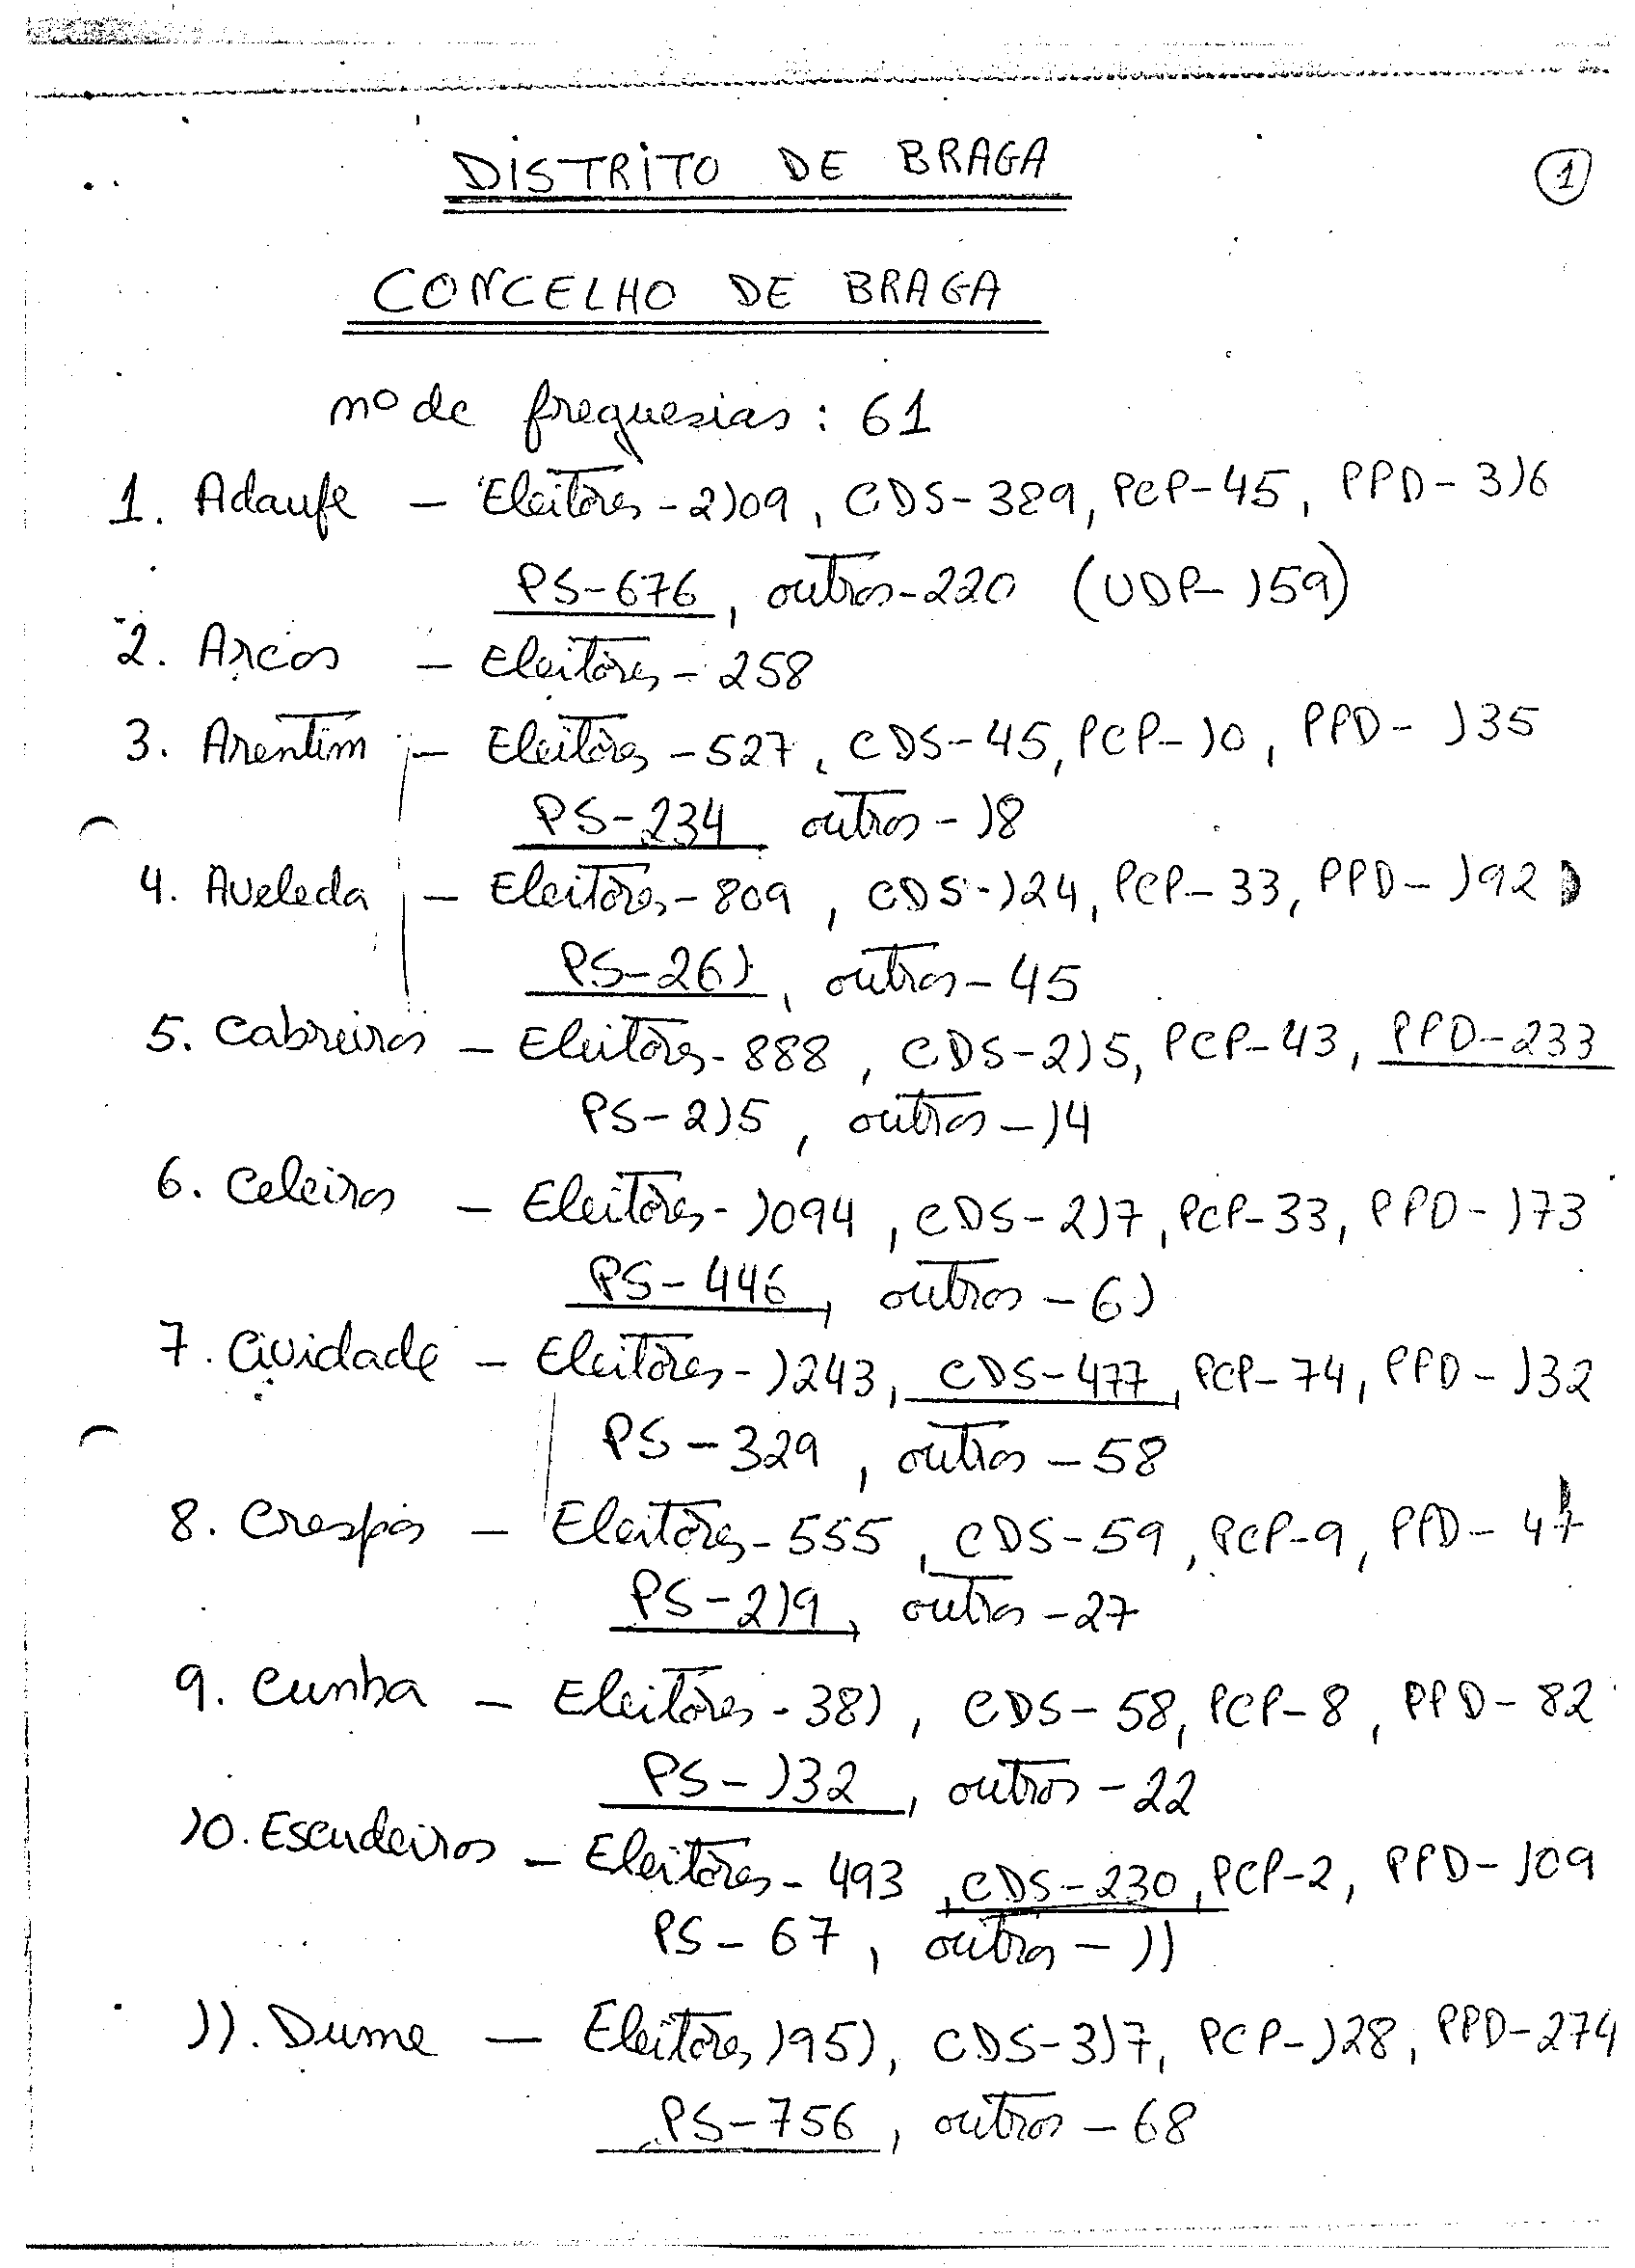 DISTRITO DE BRAGA
1
CONCELHO DE BRAGA
nº de freguesias: 61
1. Adaufe – Eleitores - 2109, CDS - 389, PCP - 45, PPD - 316
PS - 676, outros - 220 (UDP - 159)
2. Arcos – Eleitores - 258
3. Arentim – Eleitores - 527, CDS - 45, PCP - 10, PPD - 135
PS - 234 outros - 18
4. Aveleda – Eleitores - 809, CDS - 124, PCP - 33, PPD - 192
PS - 261, outros - 45
5. Cabreiros – Eleitores - 888, CDS - 215, PCP - 43, PPD - 233
PS - 215, outros - 14
6. Celeiros – Eleitores - 1094, CDS - 217, PCP - 33, PPD - 173
PS - 446, outros - 61
7. Cividade – Eleitores - 1243, CDS - 477, PCP - 74, PPD - 132
PS - 329, outros - 58
8. Crespos – Eleitores - 555, CDS - 59, PCP - 9, PPD - 47
PS - 219, outros - 27
9. Cunha – Eleitores - 381, CDS - 58, PCP - 8, PPD - 82
PS - 132, outros - 22
10. Escudeiros – Eleitores - 493, CDS - 230, PCP - 2, PPD - 109
PS - 67, outros - 11
11. Dume – Eleitores 1951, CDS - 317, PCP - 128, PPD - 274
PS - 756, outros - 68